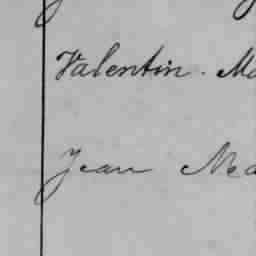 Valentin. Ma
Jean Mea